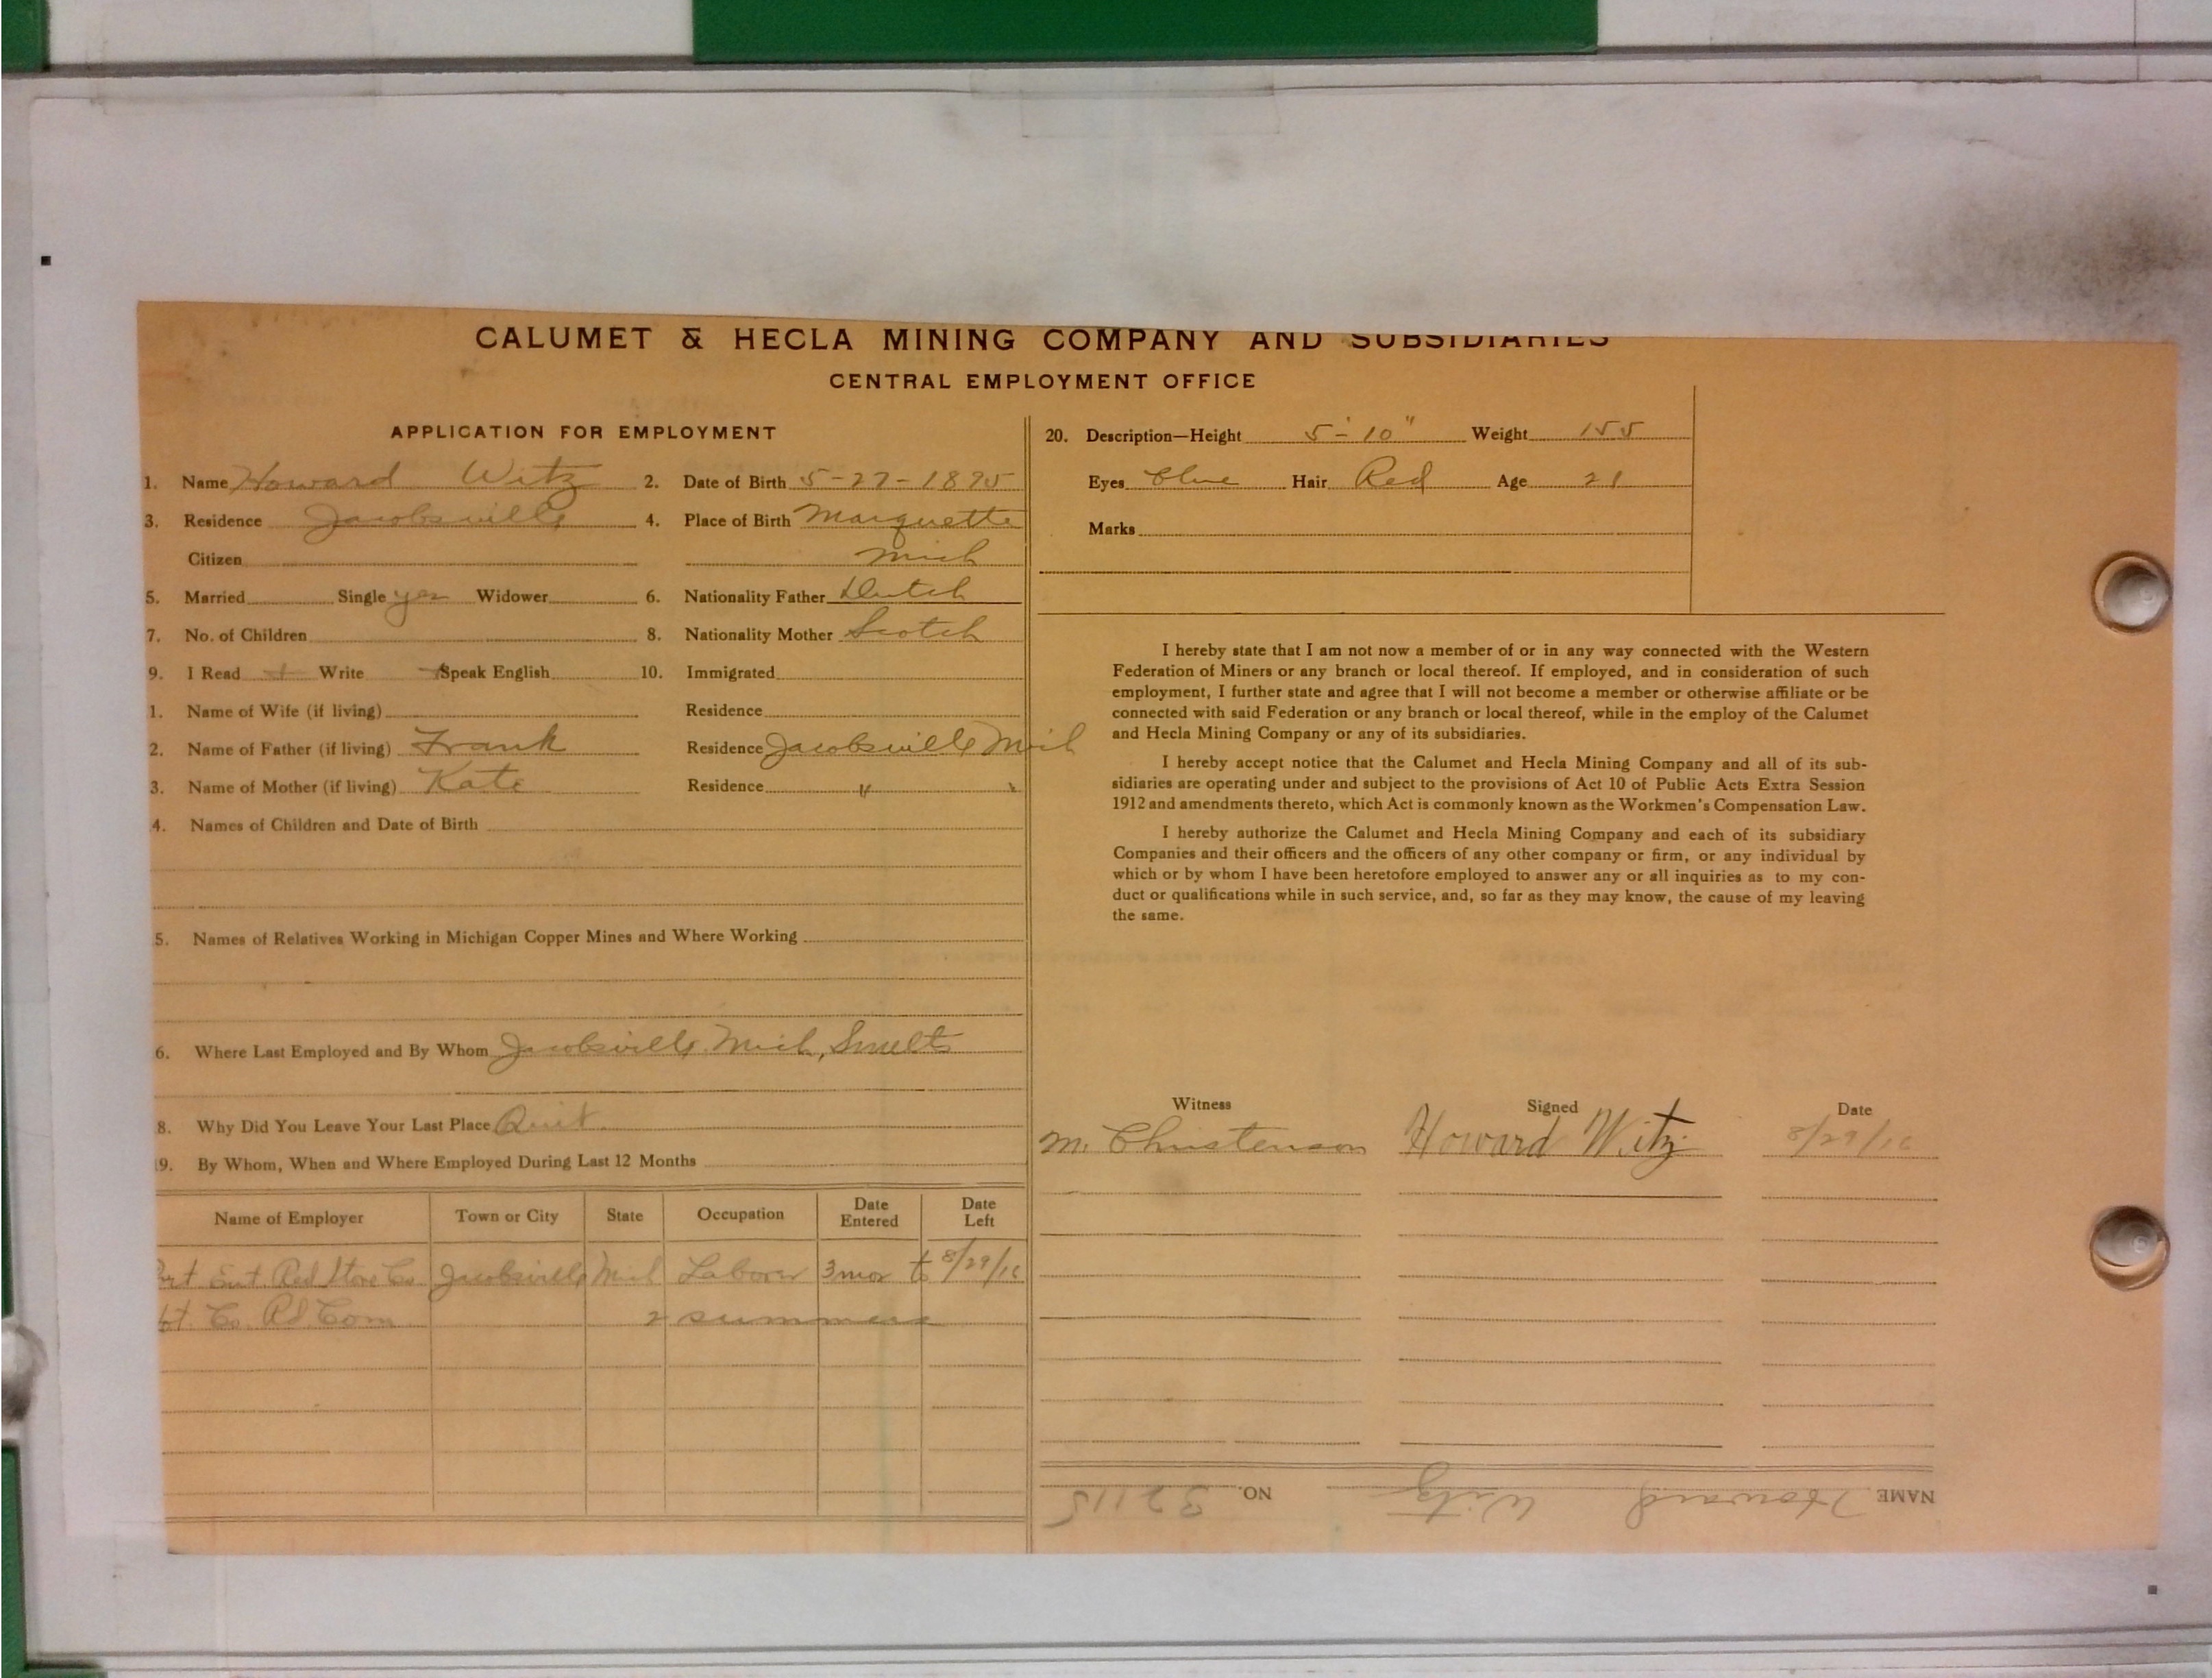 CALUMET & HECLA MINING COMPANY AND SUBSIDIARIES
CENTRAL EMPLOYMENT OFFICE
APPLICATION FOR EMPLOYMENT
1. Name Howard Witz 2. Date of Birth 5-27-1895
3. Residence Jacobsville 4. Place of Birth Marquette
Citizen Mich
5. Married Single yes Widower 6. Nationality Father Dutch
7. No. of Children 8. Nationality Mother Scotch
9. I Read + Write + Speak English 10. Immigrated
1. Name of Wife (if living) Residence
2. Name of Father (if living) Frank Residence Jacobsville Mich
3. Name of Mother (if living) Kate Residence " "
4. Names of Children and Date of Birth
5. Names of Relatives Working in Michigan Copper Mines and Where Working
6. Where Last Employed and By Whom Jacobsville Mich,
8. Why Did You Leave Your Last Place Quit.
19. By Whom, When and Where Employed During Last 12 Months
Name of Employer Town or City State Occupation Date Entered Date Left
Red Stone Co Jacobsville Mich Laborer 3 mos to 8/29/16
Co. Rd Com 2 summers
20. Description—Height 5'-10" Weight 155
Eyes blue Hair Red Age 21
Marks
I hereby state that I am not now a member of or in any way connected with the Western
Federation of Miners or any branch or local thereof. If employed, and in consideration of such
employment, I further state and agree that I will not become a member or otherwise affiliate or be
connected with said Federation or any branch or local thereof, while in the employ of the Calumet
and Hecla Mining Company or any of its subsidiaries.
I hereby accept notice that the Calumet and Hecla Mining Company and all of its sub-
sidiaries are operating under and subject to the provisions of Act 10 of Public Acts Extra Session
1912 and amendments thereto, which Act is commonly known as the Workmen's Compensation Law.
I hereby authorize the Calumet and Hecla Mining Company and each of its subsidiary
Companies and their officers and the officers of any other company or firm, or any individual by
which or by whom I have been heretofore employed to answer any or all inquiries as to my con-
duct or qualifications while in such service, and, so far as they may know, the cause of my leaving
the same.
Witness Signed Date
M. Christenson Howard Witz 8/29/16
NAME Howard Witz NO. 32115